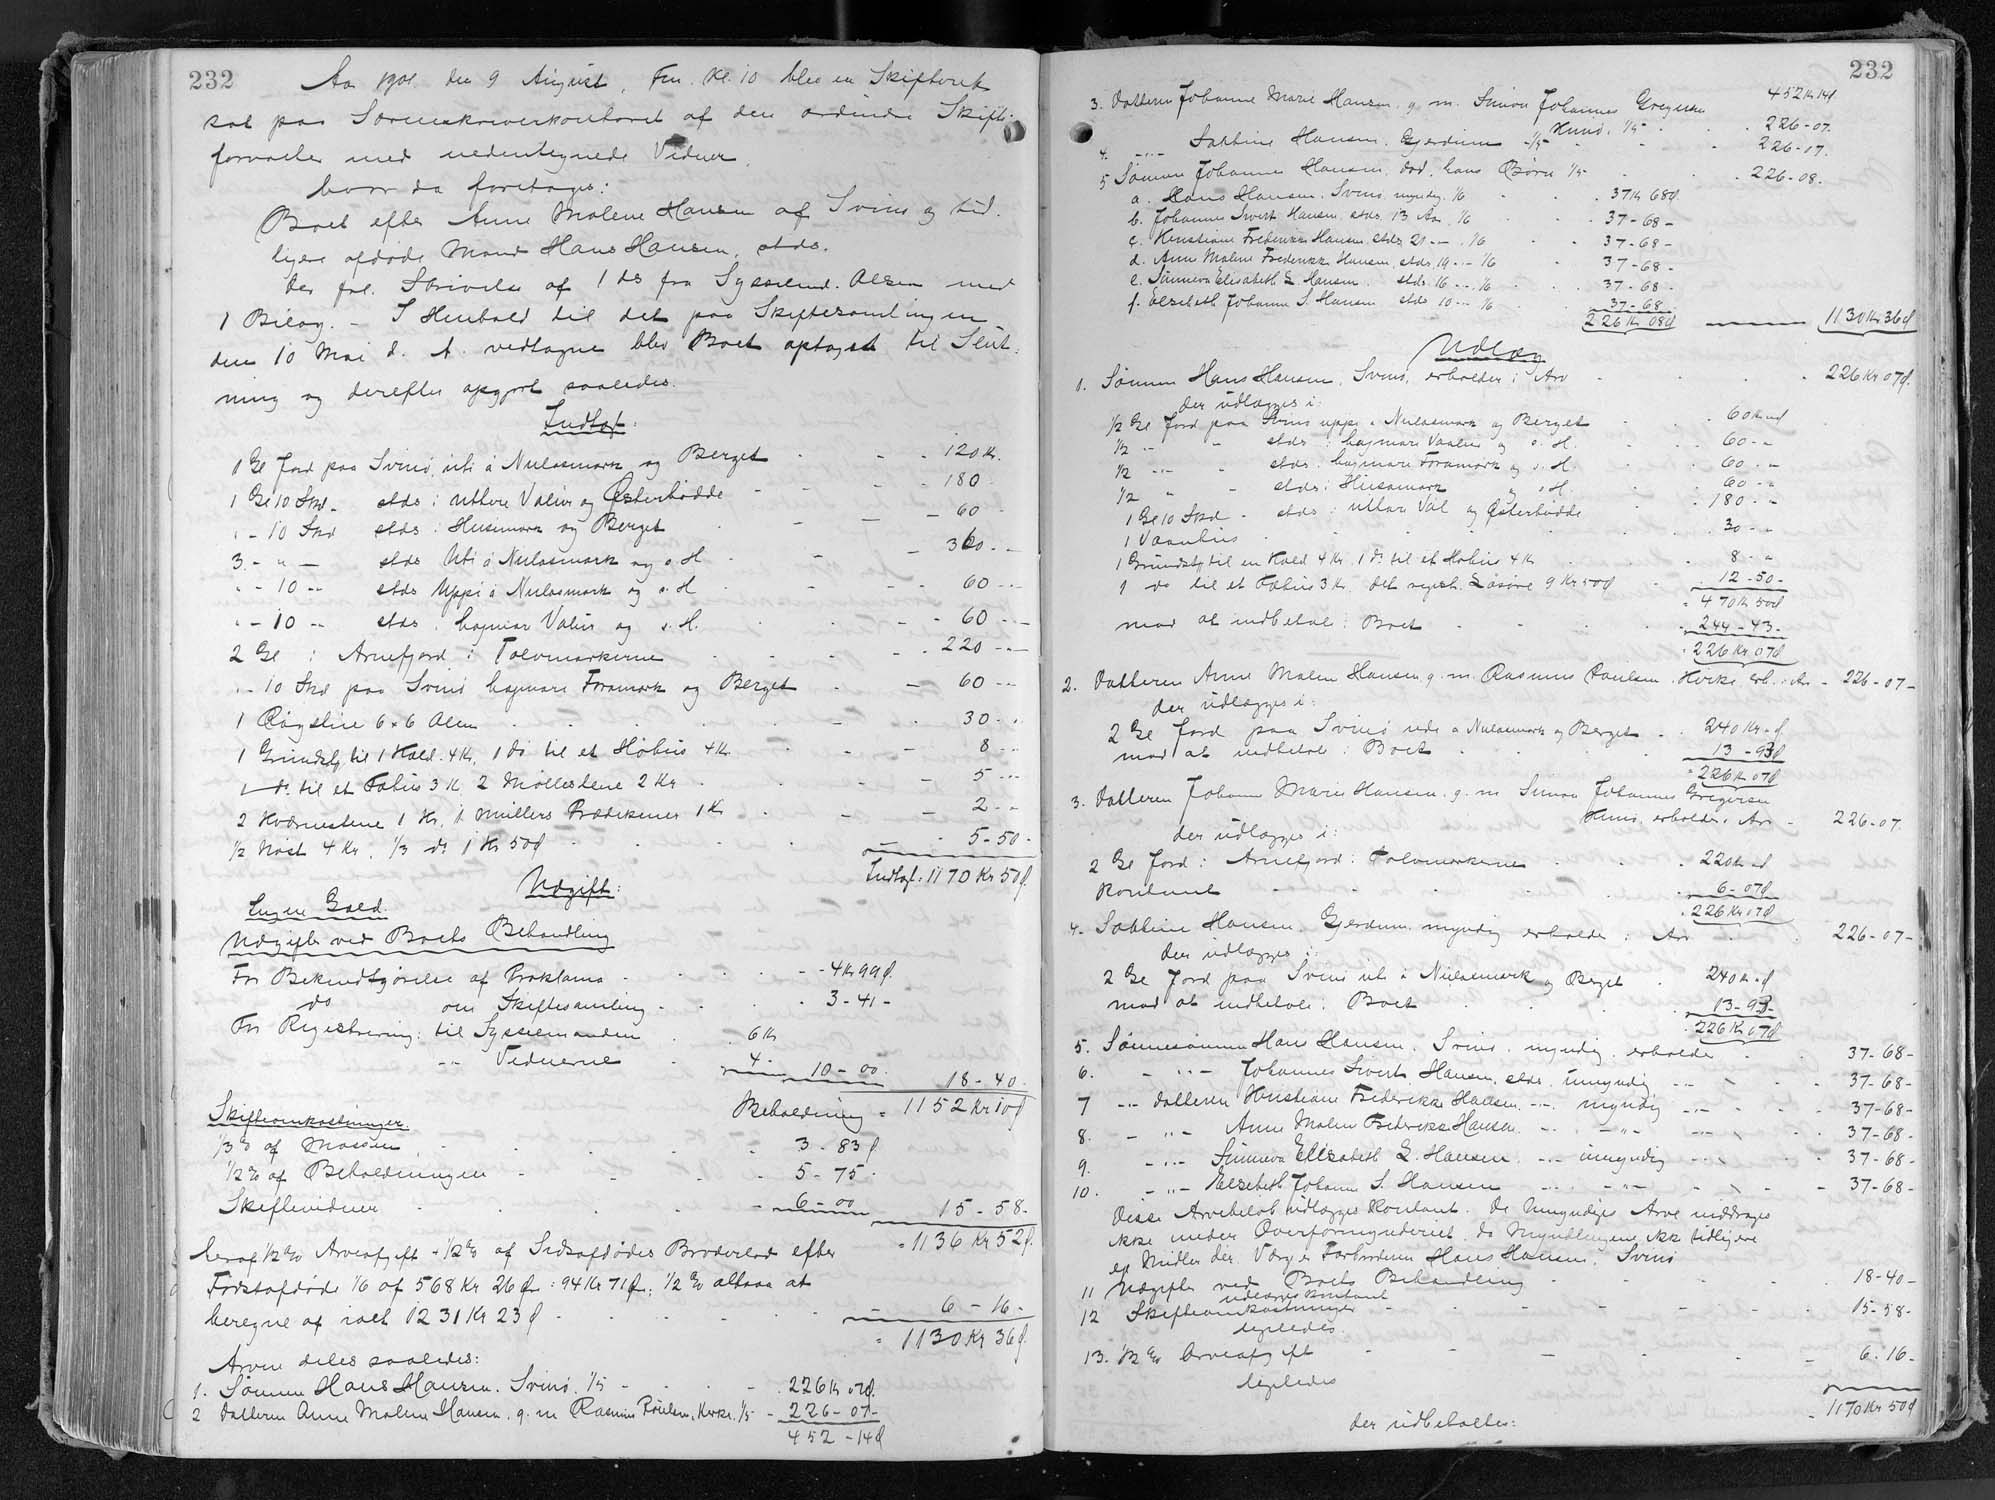 232
Aar 1901 den 9 August, Fm. Kl. 10 blev en Skifteret
sat paa Sorenskriverkontoret af den ordinære Skifte-
forvalter med nedentegnede Vidner.
hvor da foretoges:
Boet efter Anne Malene Hansen af Svinø og tid-
ligere afdøde Mand Hans Hansen, stds.
Der frl. Skrivelse af 1 ds fra Sysselmd. Olsen med
1 Bilag. - I Henhold til det paa Skiftesamlingen
den 10 Mai d. A. vedtagne blev Boet optaget til Slut-
ning og derefter opgjort saaledes.
Indtægt:
1 Gl Jord paa Svinø, uti á Nulasmark og Berget - - - 120 Kr.
1 Gl 10 Skd - stds i uttere Valur og Østerbødde - - - 180
" - 10 Skd stds i Husamark og Berget - - - 60 -
3 - " - stds Uti á Nulasmark og s. H - - 360 - -
" - 10 - - stds Uppi á Nulasmark og s. H - - 60 - -
" - 10 - - stds. hagmar Valur og s. H. - - 60 - -
2 Gl i Arnefjord i Tolvmarkerne - - 220 - -
" - 10 Skd paa Svinø hagmara Foramark og Berget - - 60 - -
1 Røgstue 6 x 6 Alen - - 30 - -
1 Grundstk til 1 Hald. 4 Kr, 1 do til et Høhus 4 Kr - - 8 - -
1 do til et Fæhus 3 Kr 2 Møllestene 2 Kr - - 5 - -
2 Kværnestene 1 Kr, 1 Müllers Prædikener 1 Kr - - 2 - -
1/2 Nøst 4 Kr, 1/3 do 1 Kr 50 Ø - - 5 - 50 -
Indtægt: 1170 Kr 50 Ø.
Udgift:
Ingen Gæld.
Udgifter ved Boets Behandling
For Bekendtgørelse af Proklama - - - 4 Kr 99 Ø.
do om Skiftesamling - - - 3 - 41 -
For Registrering: til Sysselmanden 6 Kr
- - Vidnerne 4 - 10 - 00. 18 - 40.
Beholdning = 1152 Kr 10 Ø
Skifteomkostninger.
1/3 % af Massen - - - 3 - 83 Ø
1/2 % af Beholdningen - - - 5 - 75.
Skiftevidner - - - 6 - 00 15 - 58 -
= 1136 Kr 52 Ø.
heraf 1/2 % Arveafgift - 1/2 % af Sidstafdødes Broderlod efter
Førstafdøde 1/6 af 568 Kr 26 Ø = 94 Kr 71 Ø, 1/2 % altsaa at
beregne af ialt 1231 Kr 23 Ø - - - 6 - 16 -
= 1130 Kr 36 Ø.
Arven deles saaledes:
1. Sønnen Hans Hansen, Svinø, 1/5 - - - 226 Kr 07 Ø.
2 Datteren Anne Malene Hansen, g. m Rasmus Poulsen, Kirke, 1/5 - 226 - 07 -
452 - 14 Ø
232
452 Kr 14 Ø.
3. Datteren Johanne Marie Hansen, g. m. Simon Johannes Gregersen
Kunø, 1/5 - - 226 - 07.
4. - " - Sabbine Hansen, Gjerdum - 1/5 - - 226 - 07.
5 Sønnen Johannes Hansen, død, hans Børn 1/5 - - 226 - 08.
a. Hans Hansen, Svinø, myndig, 1/6 - - 37 Kr 68 Ø.
b. Johannes Sivert Hansen, stds. 13 Aar, 1/6 - - 37 - 68 -
c. Kristiane Frederikke Hansen, stds 21 - - , 1/6 - - 37 - 68 -
d. Anne Malene Frederikke Hansen, stds, 19 - - 1/6 - 37 - 68 -
e. Sunneva Elisabeth L. Hansen. stds. 16 - - 1/6 - - 37 - 68 -
f. Elsebeth Johanne S. Hansen stds 10 - - 1/6 - 37 - 68
226 Kr 08 Ø 1130 Kr 36 Ø
Udlæg
1. Sønnen Hans Hansen, Svinø, erholder i Arv - - - 226 Kr 07 Ø.
der udlægges i:
1/2 Gl Jord paa Svinø uppi á Nulasmark og Berget - - 60 Kr " Ø
1/2 - - - stds i hagmara Vaalur og s. H. - - 60 - "
1/2 - - - stds. hagmara Foramark og s. H. - - 60 - "
1/2 " - stds i Husamark og s. H. - - 60 - "
1 Gl 10 Skd - stds i uttara Val og Østerbødde - - 180 - "
1 Vaanhus - - - 30 - "
1 Grundstk til en Hald 4 Kr. 1 do til et Høhus 4 Kr - - 8 - "
1 do til et Fæhus 3 Kr. det regist. Løsøre 9 Kr 50 Ø - 12 - 50 -
= 470 Kr 50 Ø
mod at indbetale i Boet - - - 244 - 43 -
= 226 Kr 07 Ø
2. Datteren Anne Malene Hansen, g. m. Rasmus Poulsen, Kirke, erh. i Arv - 226 - 07 -
der udlægges i:
2 Gl Jord paa Svinø ude á Nulasmark og Berget - - 240 Kr " Ø
mod at indbetale i Boet - - 13 - 93 Ø
= 226 Kr 07 Ø
3. Datteren Johanne Marie Hansen, g. m Simon Johannes Gregersen
Kunø, erholder i Arv - 226 - 07.
der udlægges i:
2 Gl Jord i Arnefjord i Tolvmarkerne - - - 220 Kr " Ø
Kontant - - - 6 - 07 Ø
= 226 Kr 07 Ø
4. Sabbine Hansen, Gjerdum, myndig erholder i Arv - - 226 - 07 -
der udlægges i:
2 Gl Jord paa Svinø uti á Nulasmark og Berget - 240 Kr " Ø
mod at indbetale i Boet - - 13 - 93 -
= 226 Kr 07 Ø
5. Sønnesønnen Hans Hansen, Svinø, myndig, erholder - - 37 - 68 -
6. - " - Johannes Sivert Hansen, stds. umyndig - - - 37 - 68 -
7 - - datteren Kristiane Frederikke Hansen, - - myndig - - - 37 - 68 -
8. - " - Anne Malene Frederikke Hansen. - - - " - - - 37 - 68 -
9. - " - Sunneva Elisabeth L. Hansen - - umyndig - - - 37 - 68 -
10. - " - Elsebeth Johanne S. Hansen - - - " - - - 37 - 68 -
Disse Arvebeløb udlægges Kontant. De Umyndiges Arv inddrages
ikke under Overformynderiet, da Myndlingene ikke tidligere
ej Midler der. Værge Farbroderen Hans Hansen, Svinø
11 Udgifter ved Boets Behandling - - 18 - 40 -
udlægges kontant
12 Skifteomkostninger - - - 15 - 58 -
ligeledes.
13. 1/2 % Arveafgift - - - 6 - 16 -
ligeledes
= 1170 Kr 50 Ø
der udbetales: